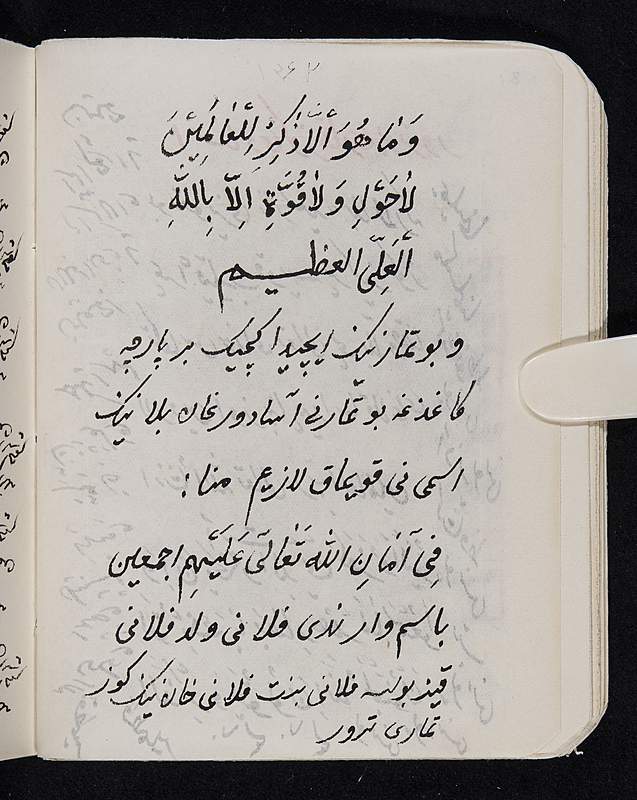 وَمٰا هُوَ اِلَّاذِكْرٌ لِلْعٰالَمِيْنَ
لٰاحَوْلِ وَلٰاقُوَّةِ اِلاّٰ بِاللّٰهِ
اَلْعَلِيّ العظیـــم
و بو تمارنینک ایچیدا کچیک بر پارچه
کاغذغه بو تمارنی آسادورغان بلانینک
اسمی نی قویماق لازیم منا :
فِیْ اَمٰانِ اللّٰه تَعٰالَی عَلَیْهِم اجمعین
باسم وارندی فلانی ولد فلانی
قیز بولسه فلانی بنت فلانی خان نینک کوز
تماری ترور